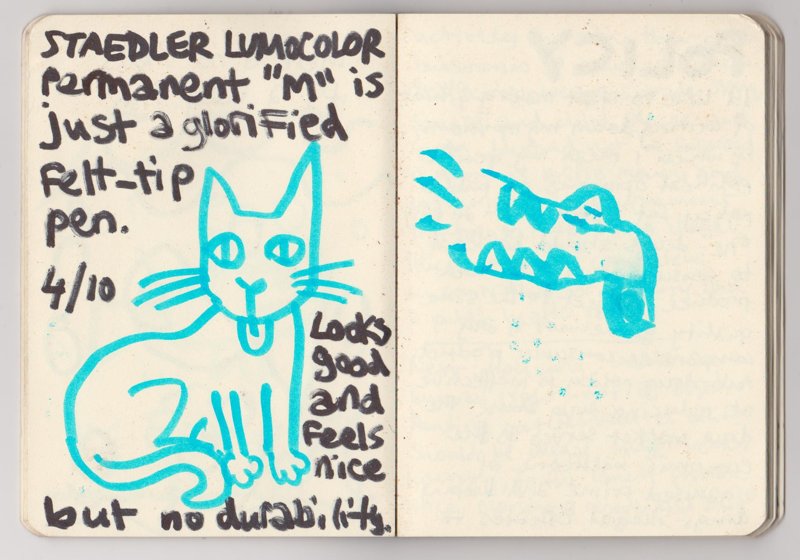 STAEDLER LUMOCOLOR
permanent "M" is
just a glorified
felt-tip
pen.
4/10
Looks
good
and
feels
nice
but no durability.